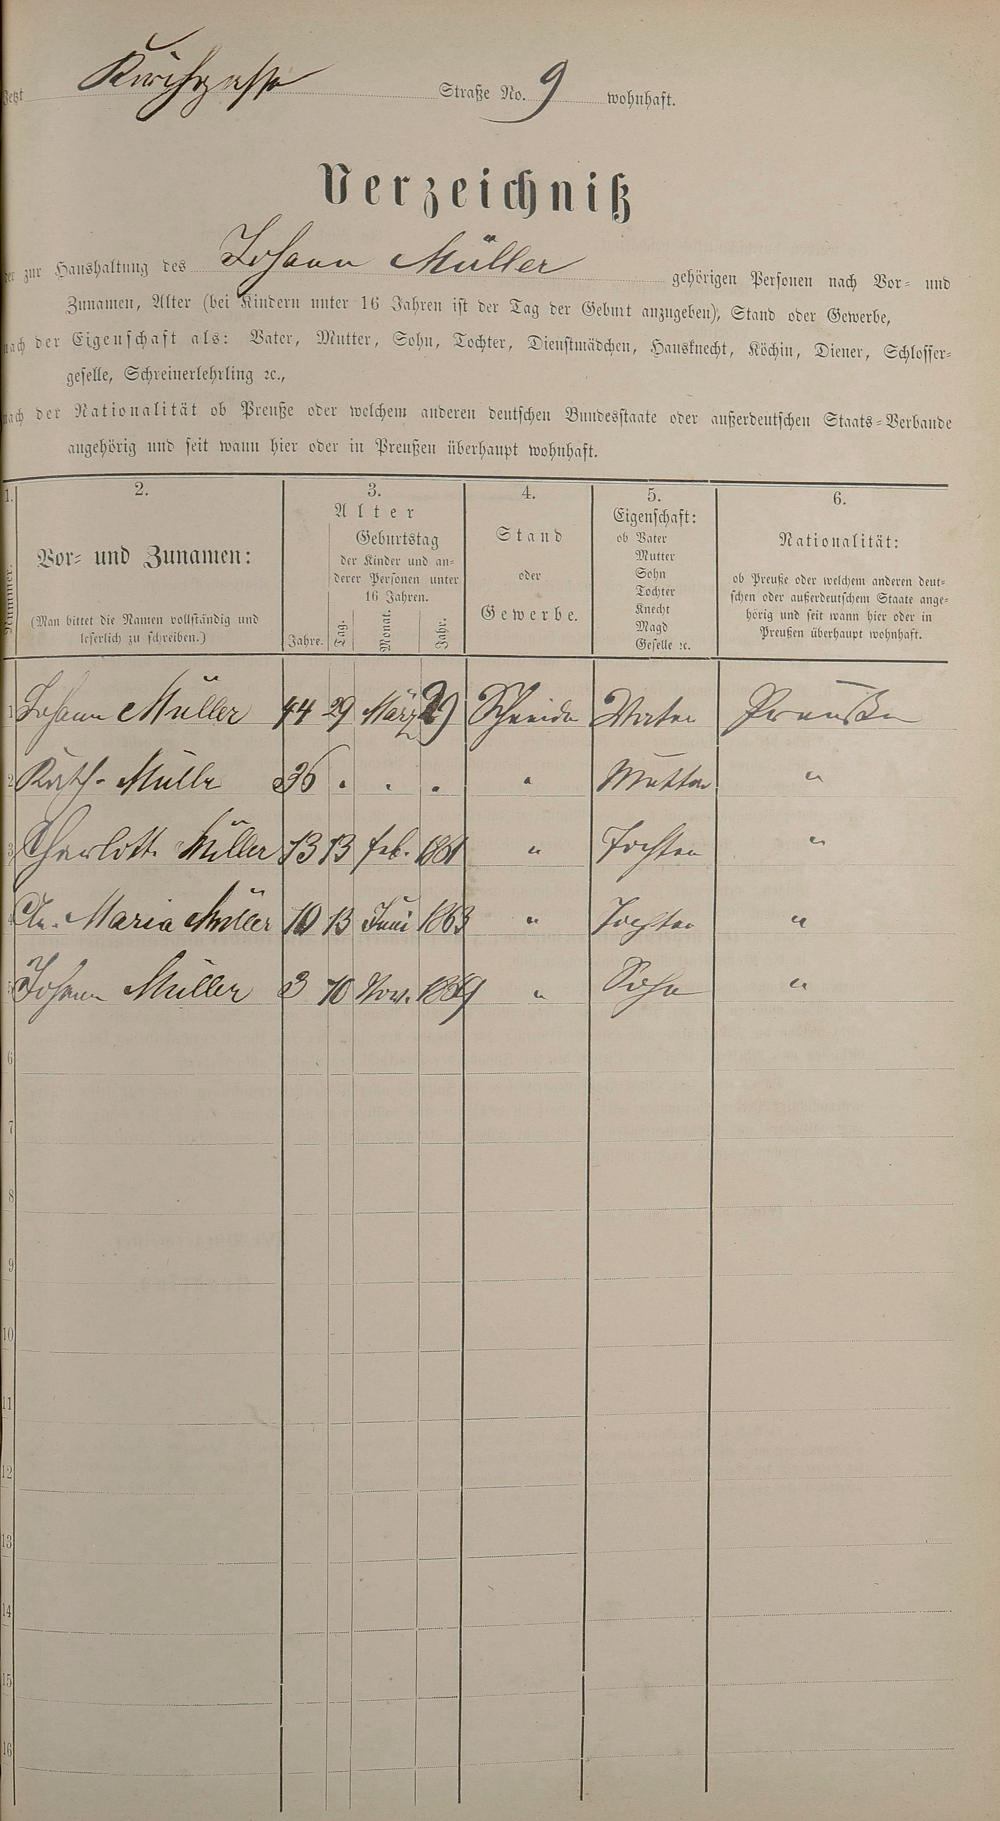 Jetzt Kirchgasse Straße No. 9 wohnhaft.
Verzeichniß
der zur Haushaltung des Johann Müller gehörigen Personen nach Vor- und
Zunamen, Alter (bei Kindern unter 16 Jahren ist der Tag der Geburt anzugeben), Stand oder Gewerbe,
nach der Eigenschaft als: Vater, Mutter, Sohn, Tochter, Dienstmädchen, Hausknecht, Köchin, Diener, Schlosser-
geselle, Schreinerlehrling ꝛc.,
nach der Nationalität ob Preuße oder welchem anderen deutschen Bundesstaate oder außerdeutschen Staats-Verbande
angehörig und seit wann hier oder in Preußen überhaupt wohnhaft.
1. 2. 3. 4. 5. 6.
Nummer.
Vor- und Zunamen:
(Man bittet die Namen vollständig und
leserlich zu schreiben.)
Alter
Jahre.
Geburtstag
der Kinder und an-
derer Personen unter
16 Jahren.
Tag. Monat. Jahr.
Stand
oder
Gewerbe.
Eigenschaft:
ob Vater
Mutter
Sohn
Tochter
Knecht
Magd
Geselle ꝛc.
Nationalität:
ob Preuße oder welchem anderen deut-
schen oder außerdeutschem Staate ange-
hörig und seit wann hier oder in
Preußen überhaupt wohnhaft.
1 Johann Müller 44 29 März 29 Schneider Vater Preuße
2 Kath. Müller 36 . . . " Mutter "
3 Charlotte Müller 13 13 Feb. 1861 " Tochter "
4 Maria Müller 10 13 Juni 1863 " Tochter "
5 Johann Müller 3 10 Nov. 1869 " Sohn "
6
7
8
9
10
11
12
13
14
15
16